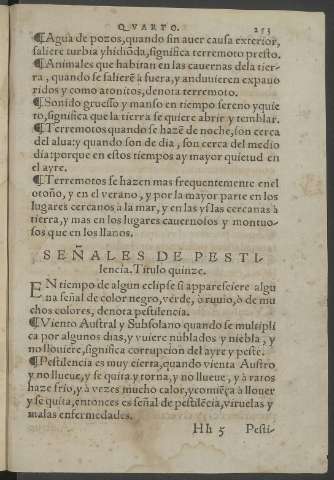 QVARTO. 253
¶Agua de pozos, quando sin auer causa exterior,
saliere turbia yhidiōda, significa terremoto presto.
¶Animales que habitan en las cauernas dela tier-
ra, quando se salierē a fuera, y anduuieren expauo
ridos y como atonitos, denota terremoto.
¶Sonido gruesso y manso en tiempo sereno yquie
to, significa que la tierra se quiere abrir y temblar.
¶Terremotos quando se hazē de noche, son cerca
del alua: y quando son de dia, son cerca del medio
dia: porque en estos tiempos ay mayor quietud en
el ayre.
¶Terremotos se hazen mas frequentemente enel
otoño, y en el verano, y por la mayor parte en los
lugares cercanos à la mar, y en las yslas cercanas à
tierra, y mas en los lugares cauernosos y montuo-
sos que en los llanos.
SEÑALES DE PESTI-
lencia. Titulo quinze.
EN tiempo de algun eclipse si appareciere algu
na señal de color negro, verde, ò ruuio, ò de mu
chos colores, denota pestilencia.
¶Viento Austral y Subsolano quando se multipli
ca por algunos dias, y vuiere nublados y niebla, y
no llouiere, significa corrupcion del ayre y peste.
¶Pestilencia es muy cierta, quando vienta Austro
y no llueue, y se quita y torna, y no llueue, y à raros
haze frio, y à vezes mucho calor, ycomiēça à llouer
y se quita, entonces es señal de pestilēcia, viruelas y
malas enfermedades.
Hh 5 Pesti-